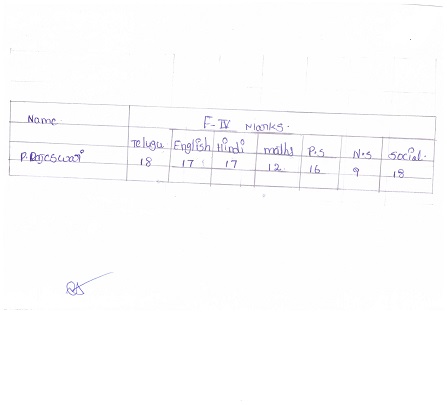 Name. F-IV Marks.
Telugu English Hindi maths P.S N.S Social.
P.Rajeswari 18 17 17 12 16 9 18